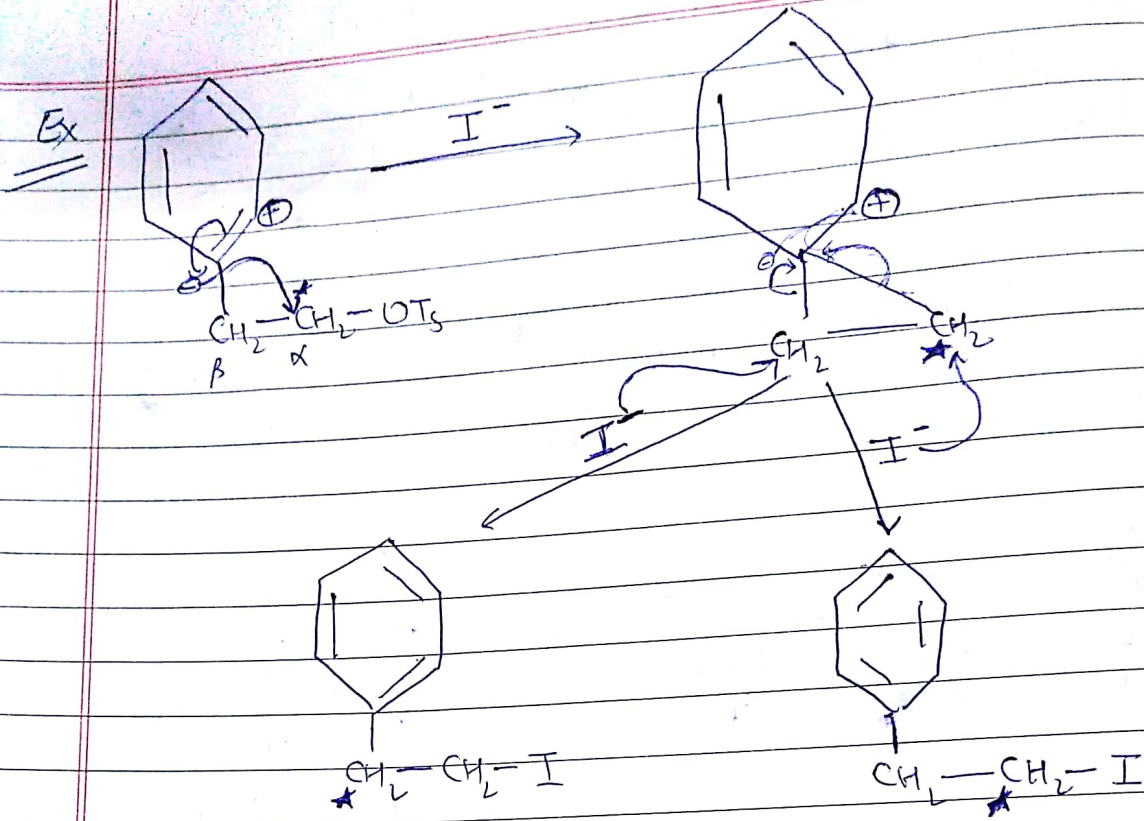 Ex
I⁻
⊕
⊖
★
CH₂—CH₂—OTs
β α
⊕
⊖
CH₂ CH₂
★
I⁻
I⁻
CH₂—CH₂—I
★
CH₂—CH₂—I
★